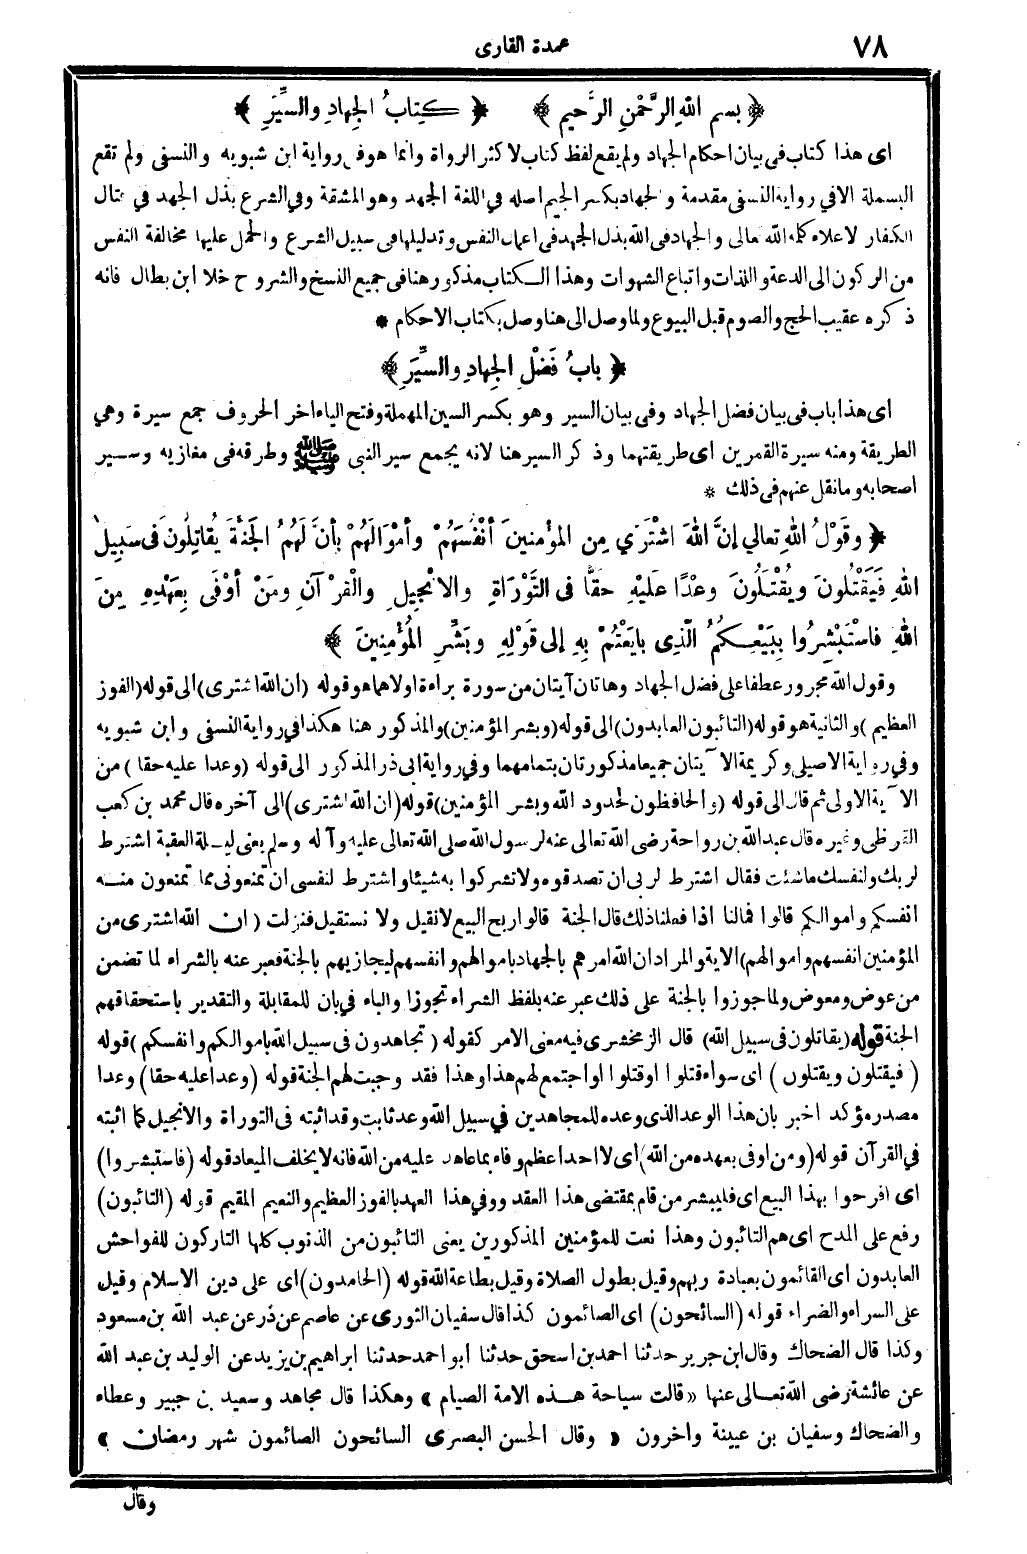 ٧٨
عمدة القارى
﴿ بسم اللهِ الرَّحْمٰنِ الرَّحيم ﴾ ﴿ كِتابُ الجِهادِ والسِّيَرِ ﴾
اى هذا كتاب فى بيان احكام الجهاد ولم يقع لفظ كتاب لاكثر الرواة وانما هو فى رواية ابن شبويه والنسفى ولم تقع
البسملة الا في رواية النسفى مقدمة والجهاد بكسر الجيم اصله في اللغة الجهد وهو المشقة وفي الشرع بذل الجهد في قتال
الكفار لاعلاء كلمة الله تعالى والجهاد فى الله بذل الجهد فى اعمال النفس وتدليلها فى سبيل الشرع والحمل عليها مخالفة النفس
من الركون الى الدعة واللذات واتباع الشهوات وهذا الكتاب مذكور هنا فى جميع النسخ والشروح خلا ابن بطال فانه
ذكره عقيب الحج والصوم قبل البيوع ولما وصل الى هنا وصل بكتاب الاحكام *
﴿ بابُ فَضْلِ الجِهادِ والسِّيَرِ ﴾
اى هذا باب فى بيان فضل الجهاد وفى بيان السير وهو بكسر السين المهملة وفتح الياء اخر الحروف جمع سيرة وهي
الطريقة ومنه سيرة القمرين اى طريقتهما وذكر السير هنا لانه يجمع سير النبى ﷺ وطرقه فى مغازيه وسير
اصحابه وما نقل عنهم فى ذلك *
﴿ وقَوْلُ اللهِ تعالي إنَّ اللهَ اشْتَرَي مِن المؤْمنينَ أنْفُسَهُمْ وأمْوَالَهُمْ بأنَّ لَهُمُ الجَنَّةَ يُقاتِلُونَ فى سَبيلِ
اللهِ فَيَقْتُلُونَ ويُقْتَلُونَ وعْدًا عَلَيْهِ حقًّا فى التَّوْرَاةِ والانْجِيلِ والْقرْآنِ ومَنْ أوْفَى بِعَهْدِهِ مِنَ
اللهِ فاسْتَبْشِرُوا بِبَيْعِكُمُ الَّذِى بايَعْتُمْ بِهِ إلى قَوْلِهِ وبَشِّرِ المُؤْمِنِينَ ﴾
وقول الله مجرور عطفا على فضل الجهاد وهاتان آيتان من سورة براءة اولاهما هو قوله (ان الله اشترى) الى قوله (الفوز
العظيم) والثانية هو قوله (التائبون العابدون) الى قوله (وبشر المؤمنين) والمذكور هنا هكذا في رواية النسفى وابن شبويه
وفي رواية الاصيلى وكريمة الآيتان جميعا مذكورتان بتمامهما وفي رواية ابى ذر المذكور الى قوله (وعدا عليه حقا) من
الآية الاولى ثم قال الى قوله (والحافظون لحدود الله وبشر المؤمنين) قوله (ان الله اشترى) الى آخره قال محمد بن كعب
القرظى وغيره قال عبد الله بن رواحة رضى الله تعالى عنه لرسول الله صلى الله تعالى عليه وآله وسلم يعنى ليلة العقبة اشترط
لربك ولنفسك ما شئت فقال اشترط لربى ان تصدقوه ولا تشركوا به شيئا واشترط لنفسى ان تمنعونى مما تمنعون منه
انفسكم واموالكم قالوا فمالنا اذا فعلنا ذلك قال الجنة قالوا ربح البيع لا نقيل ولا نستقيل فنزلت (ان الله اشترى من
المؤمنين انفسهم واموالهم) الاية والمراد ان الله امرهم بالجهاد باموالهم وانفسهم ليجازيهم بالجنة فعبر عنه بالشراء لما تضمن
من عوض ومعوض ولما جوزوا بالجنة على ذلك عبر عنه بلفظ الشراء تجوزا والباء في بان للمقابلة والتقدير باستحقاقهم
الجنة قوله (يقاتلون فى سبيل الله) قال الزمخشرى فيه معنى الامر كقوله (تجاهدون فى سبيل الله باموالكم وانفسكم) قوله
(فيقتلون ويقتلون) اى سواء قتلوا او قتلوا او اجتمع لهم هذا وهذا فقد وجبت لهم الجنة قوله (وعدا عليه حقا) وعدا
مصدر مؤكد اخبر بان هذا الوعد الذى وعده للمجاهدين في سبيل الله وعد ثابت وقد اثبته فى التوراة والانجيل كما اثبته
في القرآن قوله (ومن اوفى بعهده من الله) اى لا احد اعظم وفاء بما عاهد عليه من الله فانه لا يخلف الميعاد قوله (فاستبشروا)
اى افرحوا بهذا البيع اى فليبشر من قام بمقتضى هذا العقد ووفي هذا العهد بالفوز العظيم والنعيم المقيم قوله (التائبون)
رفع على المدح اى هم التائبون وهذا نعت للمؤمنين المذكورين يعنى التائبون من الذنوب كلها التاركون للفواحش
العابدون اى القائمون بعبادة ربهم وقيل بطول الصلاة وقيل بطاعة الله قوله (الحامدون) اى على دين الاسلام وقيل
على السراء والضراء قوله (السائحون) اى الصائمون كذا قال سفيان الثورى عن عاصم عن ذر عن عبد الله بن مسعود
وكذا قال الضحاك وقال ابن جرير حدثنا احمد بن اسحق حدثنا ابو احمد حدثنا ابراهيم بن يزيد عن الوليد بن عبد الله
عن عائشة رضى الله تعالى عنها « قالت سياحة هذه الامة الصيام » وهكذا قال مجاهد وسعيد بن جبير وعطاء
والضحاك وسفيان بن عيينة واخرون « وقال الحسن البصرى السائحون الصائمون شهر رمضان »
وقال